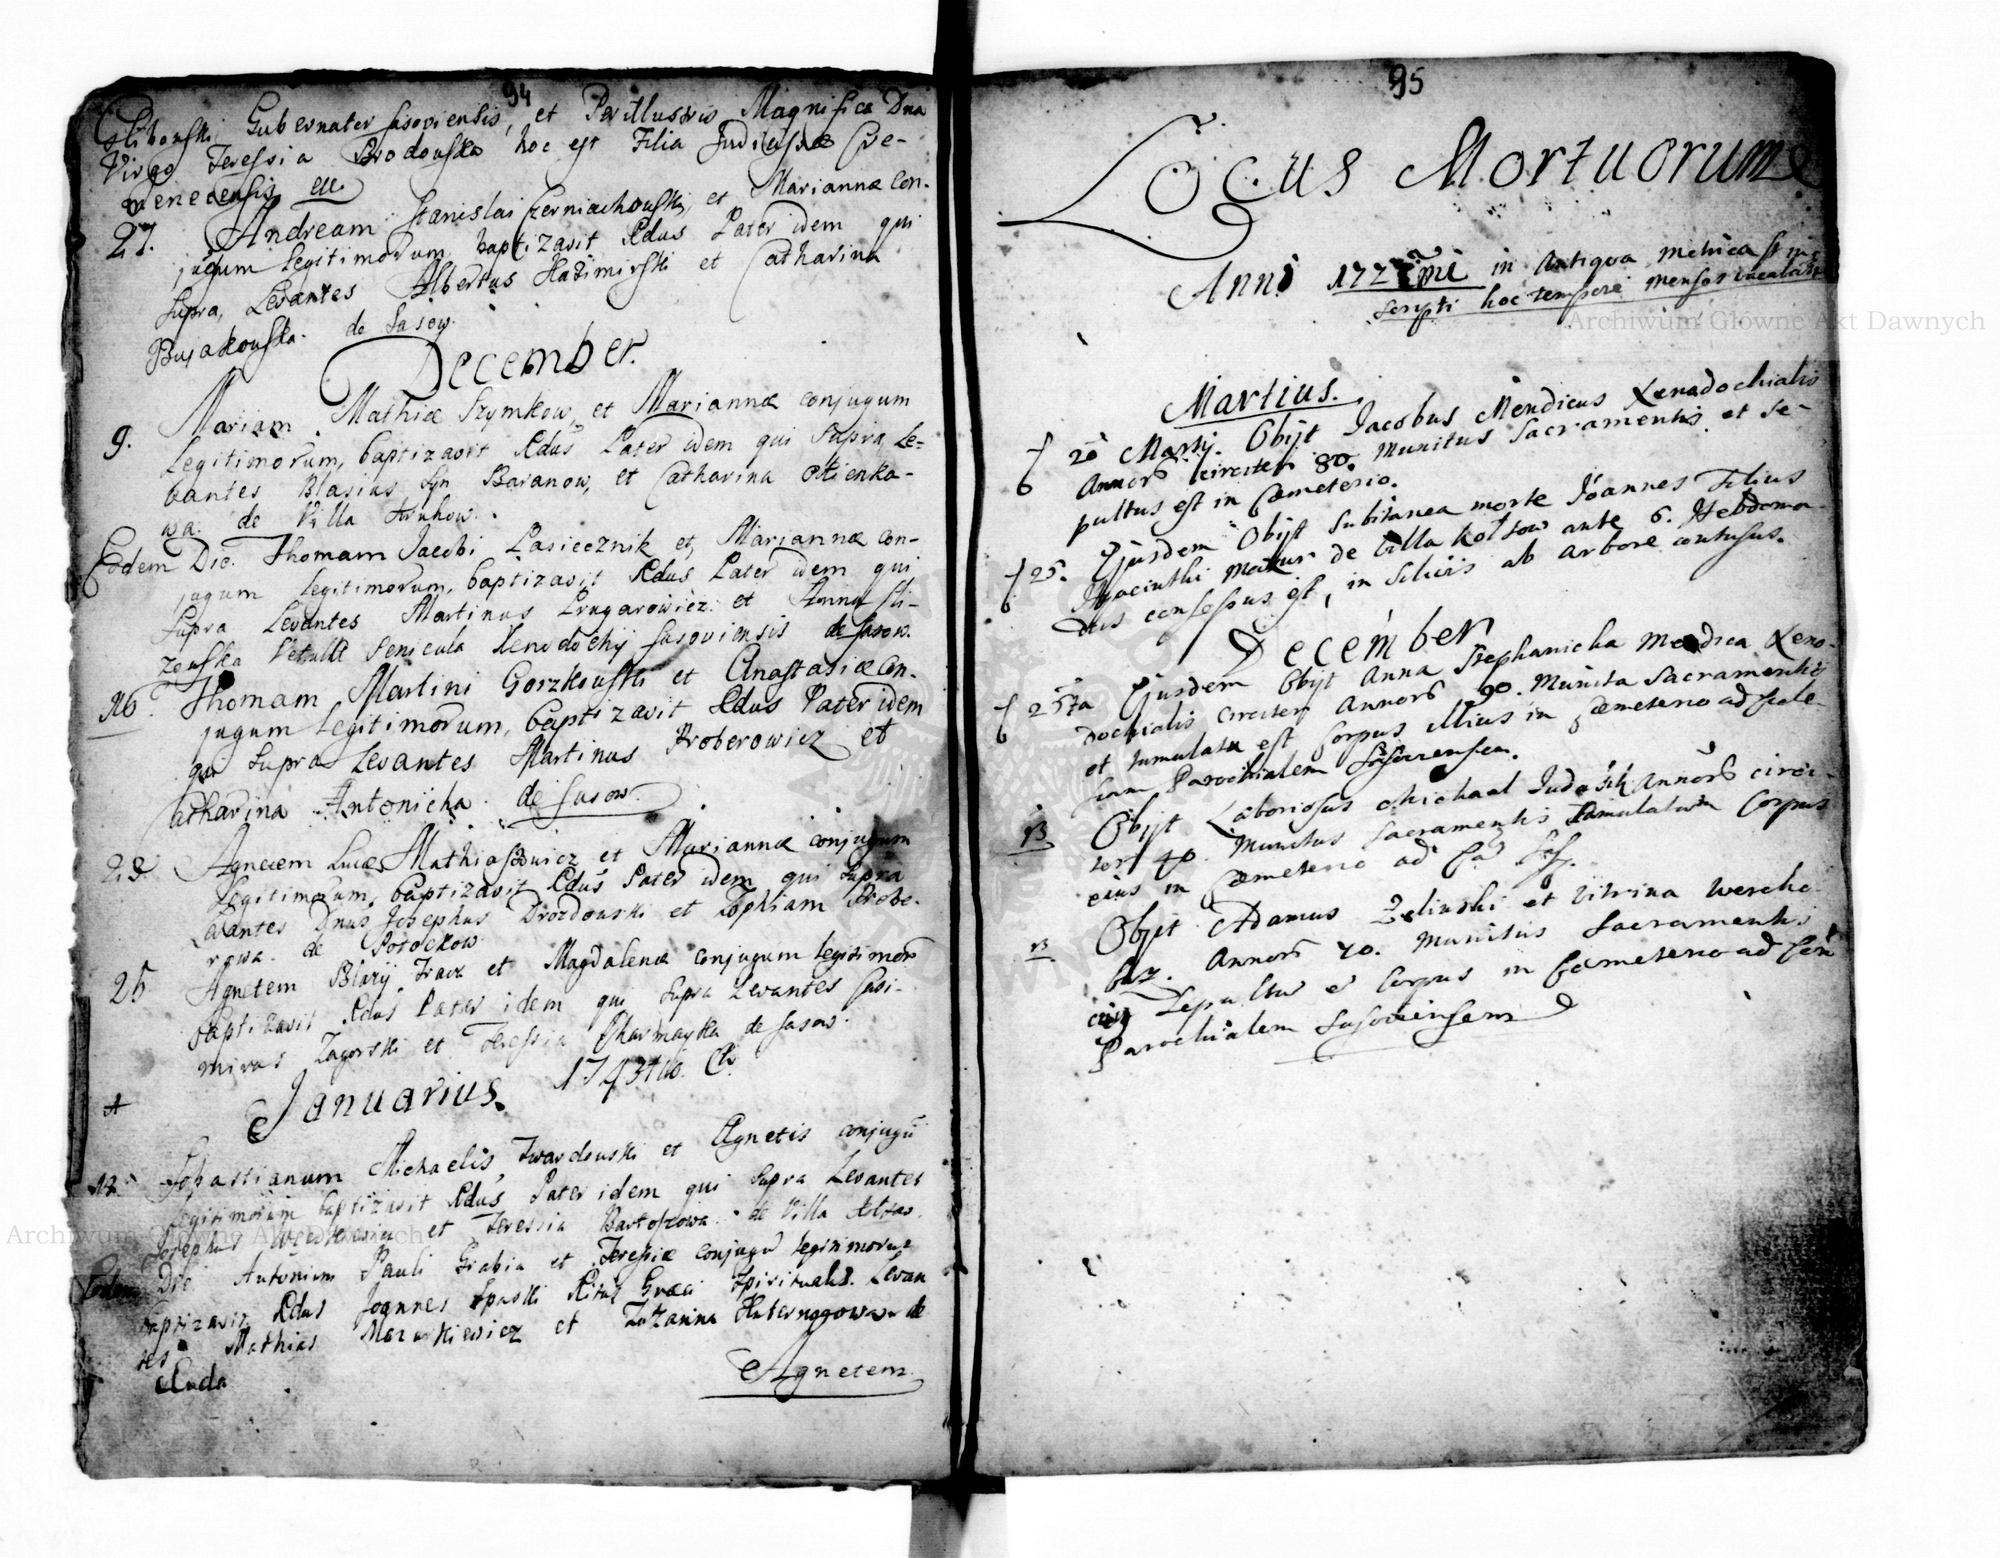 94
Gubernator Sasoviensis, et Perillustris Magnifica Dna
Virgo Teressia Brodouska hoc est Filia Cre-
menecensis
27. Andream Stanislai Czerniachouski, et Mariannæ con-
jugum Legitimorum, baptizavit Rdus Pater idem qui
supra, Levantes Albertus Kazimirski et Catharina
Bujakouska. de Sasow.
December.
9. Mariam Mathiæ Szymkow, et Mariannæ conjugum
Legitimorum, baptizavit Rdus Pater idem qui supra, Le=
vantes Blasius Syn Baranow, et Catharina
wa. de Villa
Eodem Die. Thomam Jacobi Pasiecznik et, Mariannæ con-
jugum Legitimorum, baptizavit Rdus Pater idem qui
supra Levantes Martinus et Anna Sli-
zouska Xenodochij Sasoviensis de Sasow.
16. Thomam Martini Gorzkouski et Anastasiæ con-
jugum Legitimorum, baptizavit Rdus Pater idem
qui supra Levantes Martinus Broberowicz et
Catharina Antonicha. de Sasow.
Agnetem Lucæ et Mariannæ conjugum
Legitimorum, baptizavit Rdus Pater idem qui supra
Levantes Dnus Josephus Drozdouski et Zophiam Brobe-
rowa. de Potockow.
25 Agnetem Blazij et Magdalenæ conjugum legitimor
baptizavit Rdus Pater idem qui supra Levantes Casi-
mirus Zagorski et Teressia de Sasow.
Januarius. 1743tii.
Sebastianum Michaelis, Twardouski et Agnetis conjugū
legitimorum baptizavit Rdus Pater idem qui supra Levantes
Josephus et Teressia Bartoszowa. de Villa
Eodem Die Antonium Pauli Grabia et Teressiæ conjugū legitimorum
baptizavit Rdus Joannes Ritus Græci Spiritualis. Levan
tes Mathias Mazurkiewicz et Zuzanna de
Ruda
Agnetem
95
Locus Mortuorum
Anni in Antiqva Metrica
scripti hoc tempore
Martius.
20 Martij. Obijt Jacobus Mendicus Xenodochialis
Annorū circiter 80. Munitus Sacramentis et se-
pultus est in Cœmeterio.
25. Ejusdem Obijt subitanea morte Joannes Filius
de Villa Koltow ante 6. Hebdoma-
das confessus est, in Silvis ab arbore contusus.
December
Ejusdem Obijt Anna Stephanicha Mendica Xeno-
dochialis circiter Annorū 90. Munita Sacramentis
et tumulatu est Corpus illius in Cœmeterio ad Eccle-
siam Parochialem
13 Obijt Laboriosus Michael Annorū circi-
ter 40. Munitus Sacramentis tumulatum Corpus
eius in Cœmeterio ad
13 Obijt Adamus Zelinski et Vitrina
Annorū 70. Munitus Sacramentis
Sepultus e Corpus in Cœmeterio ad
Parochialem Sasoviensem
Archiwum Główne Akt Dawnych
Archiwum Główne Akt Dawnych